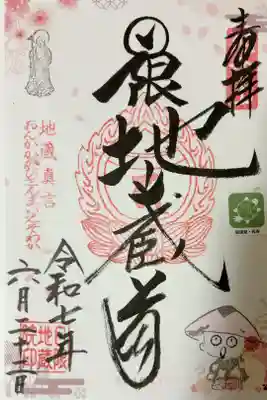 奉拝
日限地蔵尊
地蔵真言
おんかかかびさんまえいそわか
令和七年
六月二十一日
日限
地蔵
院印